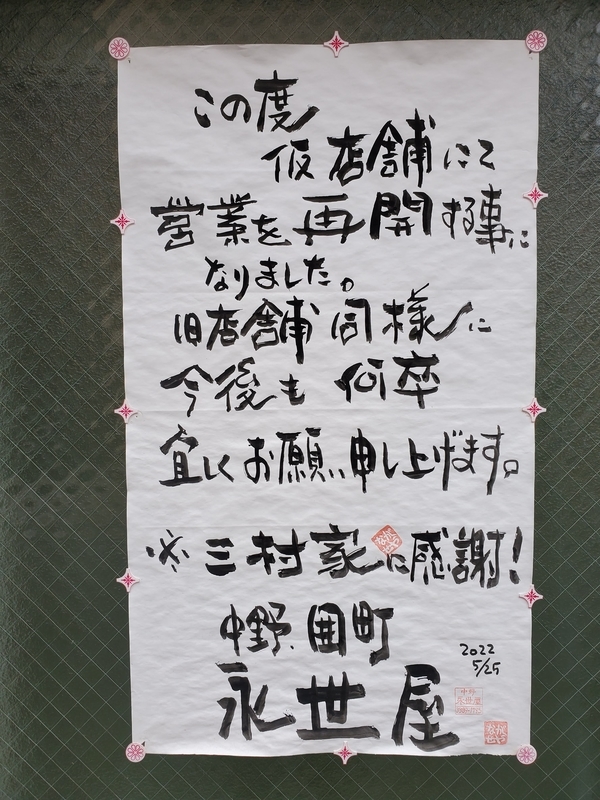 この度
仮店舗にて
営業を再開する事に
なりました。
旧店舗同様に
今後も何卒
宜しくお願い申し上げます。
※三村家に感謝!
中野 囲町
永世屋
2022
5/25